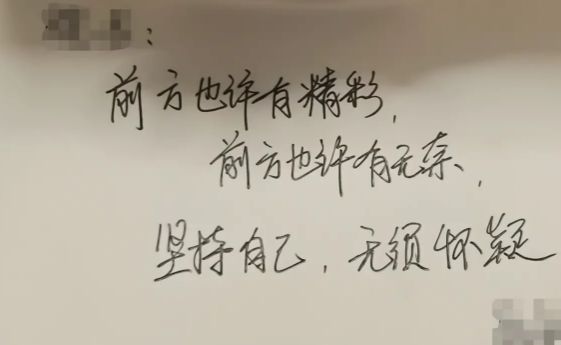 ：
前方也许有精彩，
前方也许有无奈，
坚持自己，无须怀疑